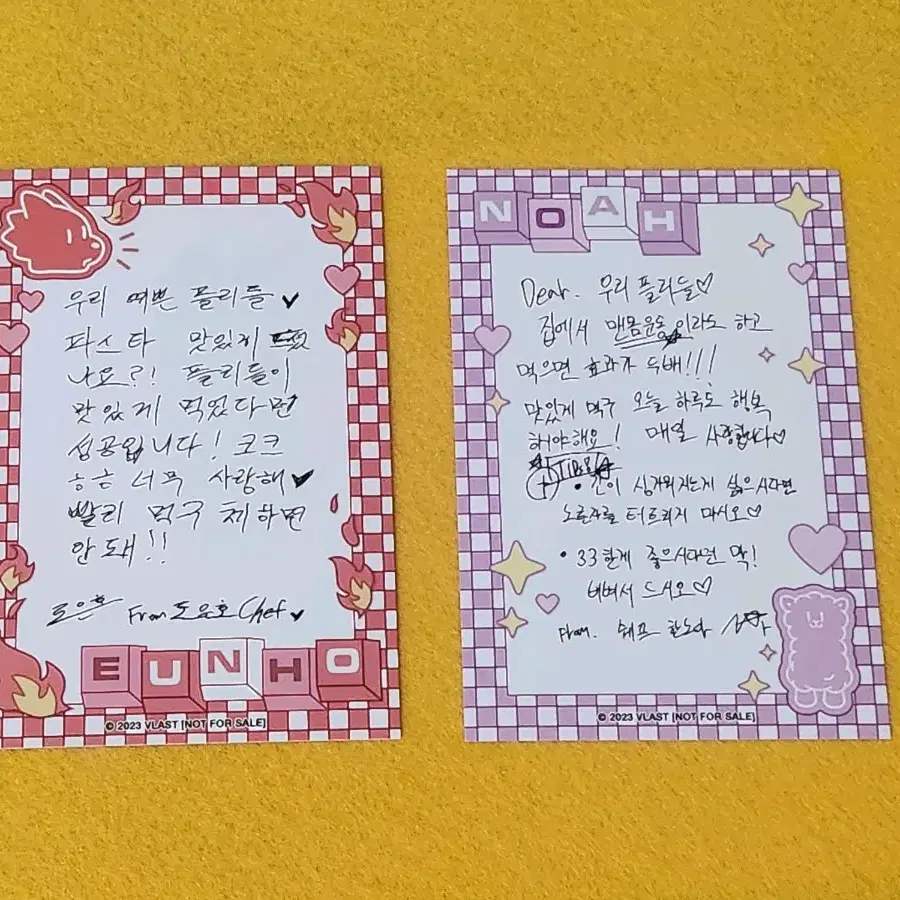 우리 예쁜 플리들
파스타 맛있게
나요?! 플리들이
맛있게 먹었다면
성공입니다! 코크
ㅎㅎ 너무 사랑해
빨리 먹구 체하면
안 돼!!
From 도은호 Chef
EUNHO
© 2023 VLAST [NOT FOR SALE]
NOAH
Dear. 우리 플리들♡
집에서 맨몸운동이라도 하고
먹으면 효과가 두배!!!
맛있게 먹구 오늘 하루도 행복
해야해요! 매일 사랑합니다♡
• 간이 싱거워지는게 싫으시다면
노른자를 터트리지 마시오♡
• 꾸덕한게 좋으시다면 막!
비벼서 드시오♡
From. 쉐프 한노아
© 2023 VLAST [NOT FOR SALE]